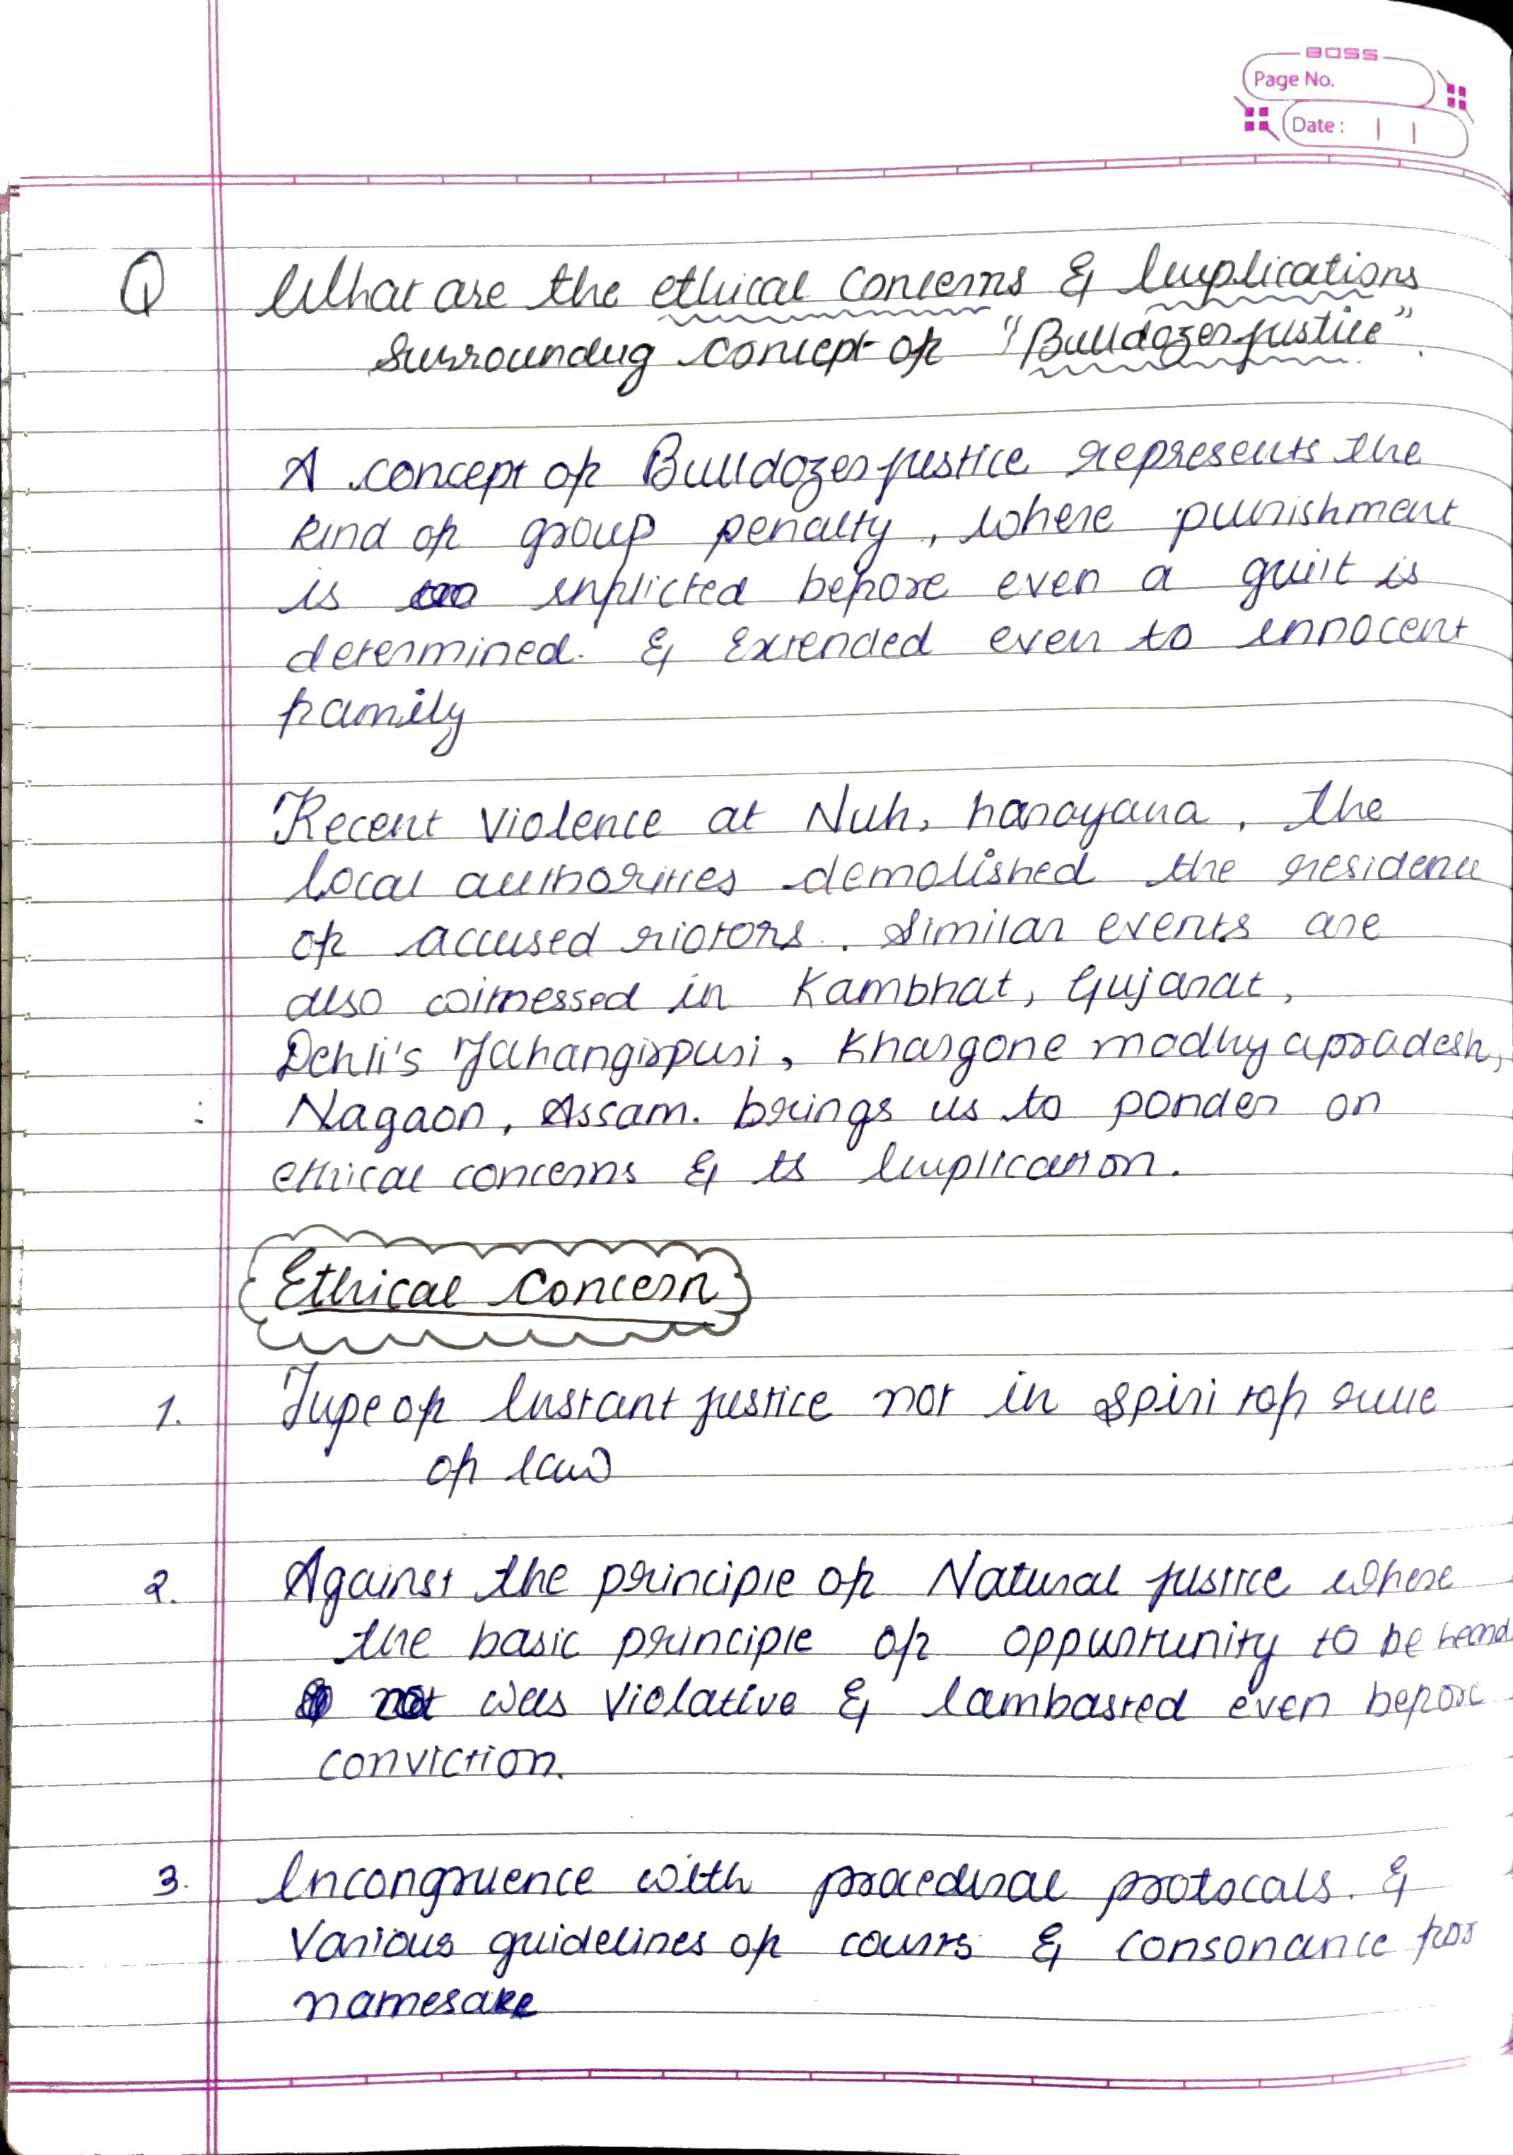 BOSS
Page No.
Date :
Q What are the ethical concerns & Implications
surrounding concept of "Bulldozer justice".
A concept of Bulldozer justice represents the
kind of group penalty, where punishment
is inflicted before even a guilt is
determined. & Extended even to innocent
family
Recent violence at Nuh, harayana, the
local authorities demolished the residence
of accused riotors. Similar events are
also witnessed in Kambhat, Gujarat,
Dehli's Jahangirpuri, Khargone madhyapradesh,
Nagaon, Assam. brings us to ponder on
ethical concerns & its Implication.
Ethical Concern
1. Type of Instant justice not in spirit of rule
of law
2. Against the principle of Natural justice where
the basic principle of oppurtunity to be heard
not was violative & lambasted even before
conviction.
3. Incongruence with procedural protocals. &
Various guidelines of courts & consonance for
namesake